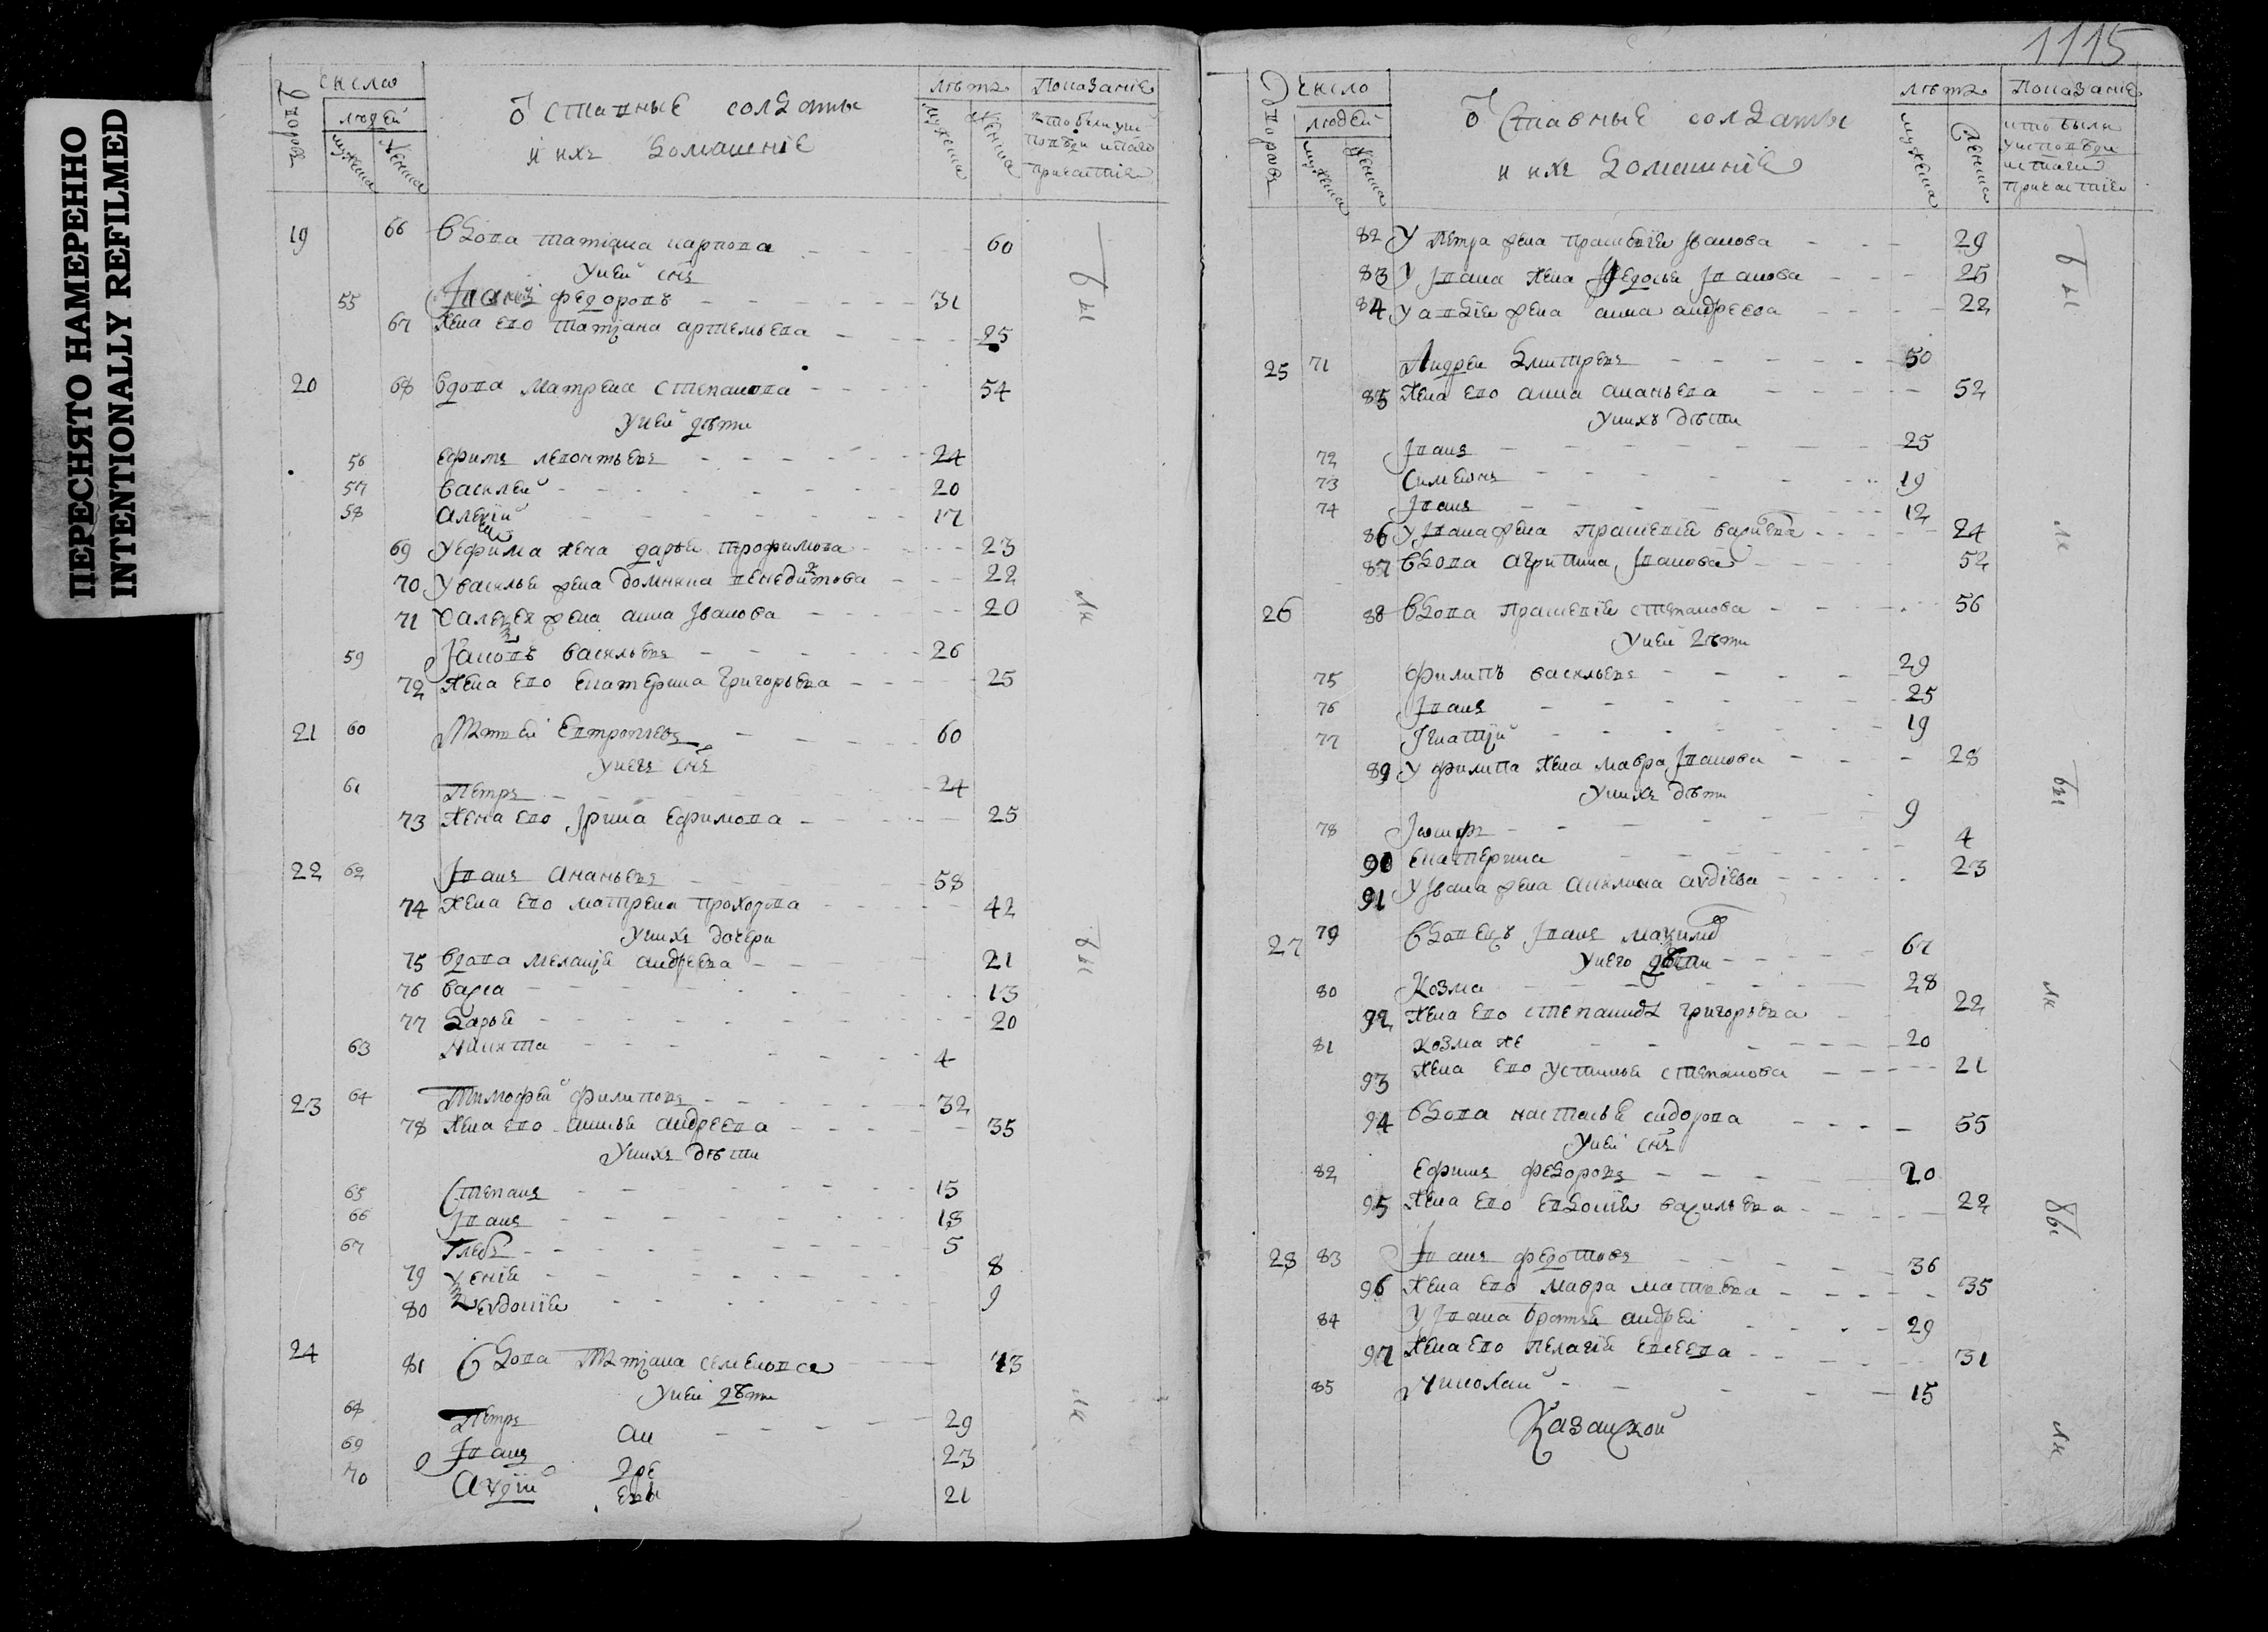 ПЕРЕСНЯТО НАМЕРЕННО
INTENTIONALLY REFILMED
число
людей
мужеска
женска
Отставные солдаты
и ихъ домашніе
лѣтъ
мужеска
женска
Показаніе
19 66 Вдова татіана карпова 60
Уней снъ
55 Іванъ федоровъ 31
67 Жена ево татіана артемьева 25
20 68 Вдова матрена степанова 54
Уней дѣти
56 Ефимъ левонтьевъ 24
57 василей 20
58 алексій 17
69 Уефима жена дарья трофимова 23
70 Увасилья жена домникиа венедихтова 22
71 Уалексея жена анна Іванова 20
59 Іаковъ васильевъ 26
72 Жена ево екатерина григорьева 25
21 60 Матвей Евтроπіевъ 60
Унего снъ
61 Петръ 24
73 Жена ево Ірина ефимова 25
22 62 Іванъ ананьевъ 58
74 Жена ево матрена прохорова 42
Унихъ дочери
75 вдова меланія андреева 21
76 васса 13
77 дарья 20
63 Никита 4
23 64 Тимофей филиповъ 32
78 Жена ево андреева 35
Унихъ дѣти
65 Степанъ 15
66 Іванъ 18
67 Глебъ 5
79 ксенія 8
80 евдокія 9
24 81 Вдова татіана семенова 73
Уней дѣти
68 Петръ ан 29
69 Іванъ дре 23
70 авдій евы 21
1115
число
людей
мужеска
женска
Отставные солдаты
и ихъ домашніе
лѣтъ
мужеска
женска
Показаніе
кто были
уисповѣди
истаго
причастія
82 У петра жена прасковія Іванова 29
83 У Івана жена федосья Іванова 25
84 У авдія жена анна андреева 22
25 71 Андреи дмитревъ 50
85 Жена ево анна ананьева 52
Унихъ дѣти
72 Іванъ 25
73 Симеонъ 19
74 Іванъ 12
86 У Івана жена васильева 24
87 Вдова агрипина Іванова 52
26 88 Вдова степанова 56
Уней дѣти
75 Филипъ васильевъ 29
76 Іванъ 25
77 Ігнатій 19
89 У филипа жена мавра Іванова 28
Унихъ дѣти
78 Іосифъ 9
90 екатерина 4
91 У Івана жена акилина авдіева 23
27 79 Вдовецъ Іванъ максимовъ 67
Унего дѣти
80 Козма 28
92 Жена ево степанида григорьева 22
81 козма же 20
93 Жена ево устинья степанова 21
94 Вдова настасья сидорова 55
Уней снъ
82 Ефимъ федоровъ 20
95 Жена ево евдокія васильева 22
28 83 Іванъ федотовъ 36
96 Жена ево мавра матвеева 35
84 У Івана братья андрей 29
97 Жена ево пелагія евсеева 31
85 Николай 15
Казанской